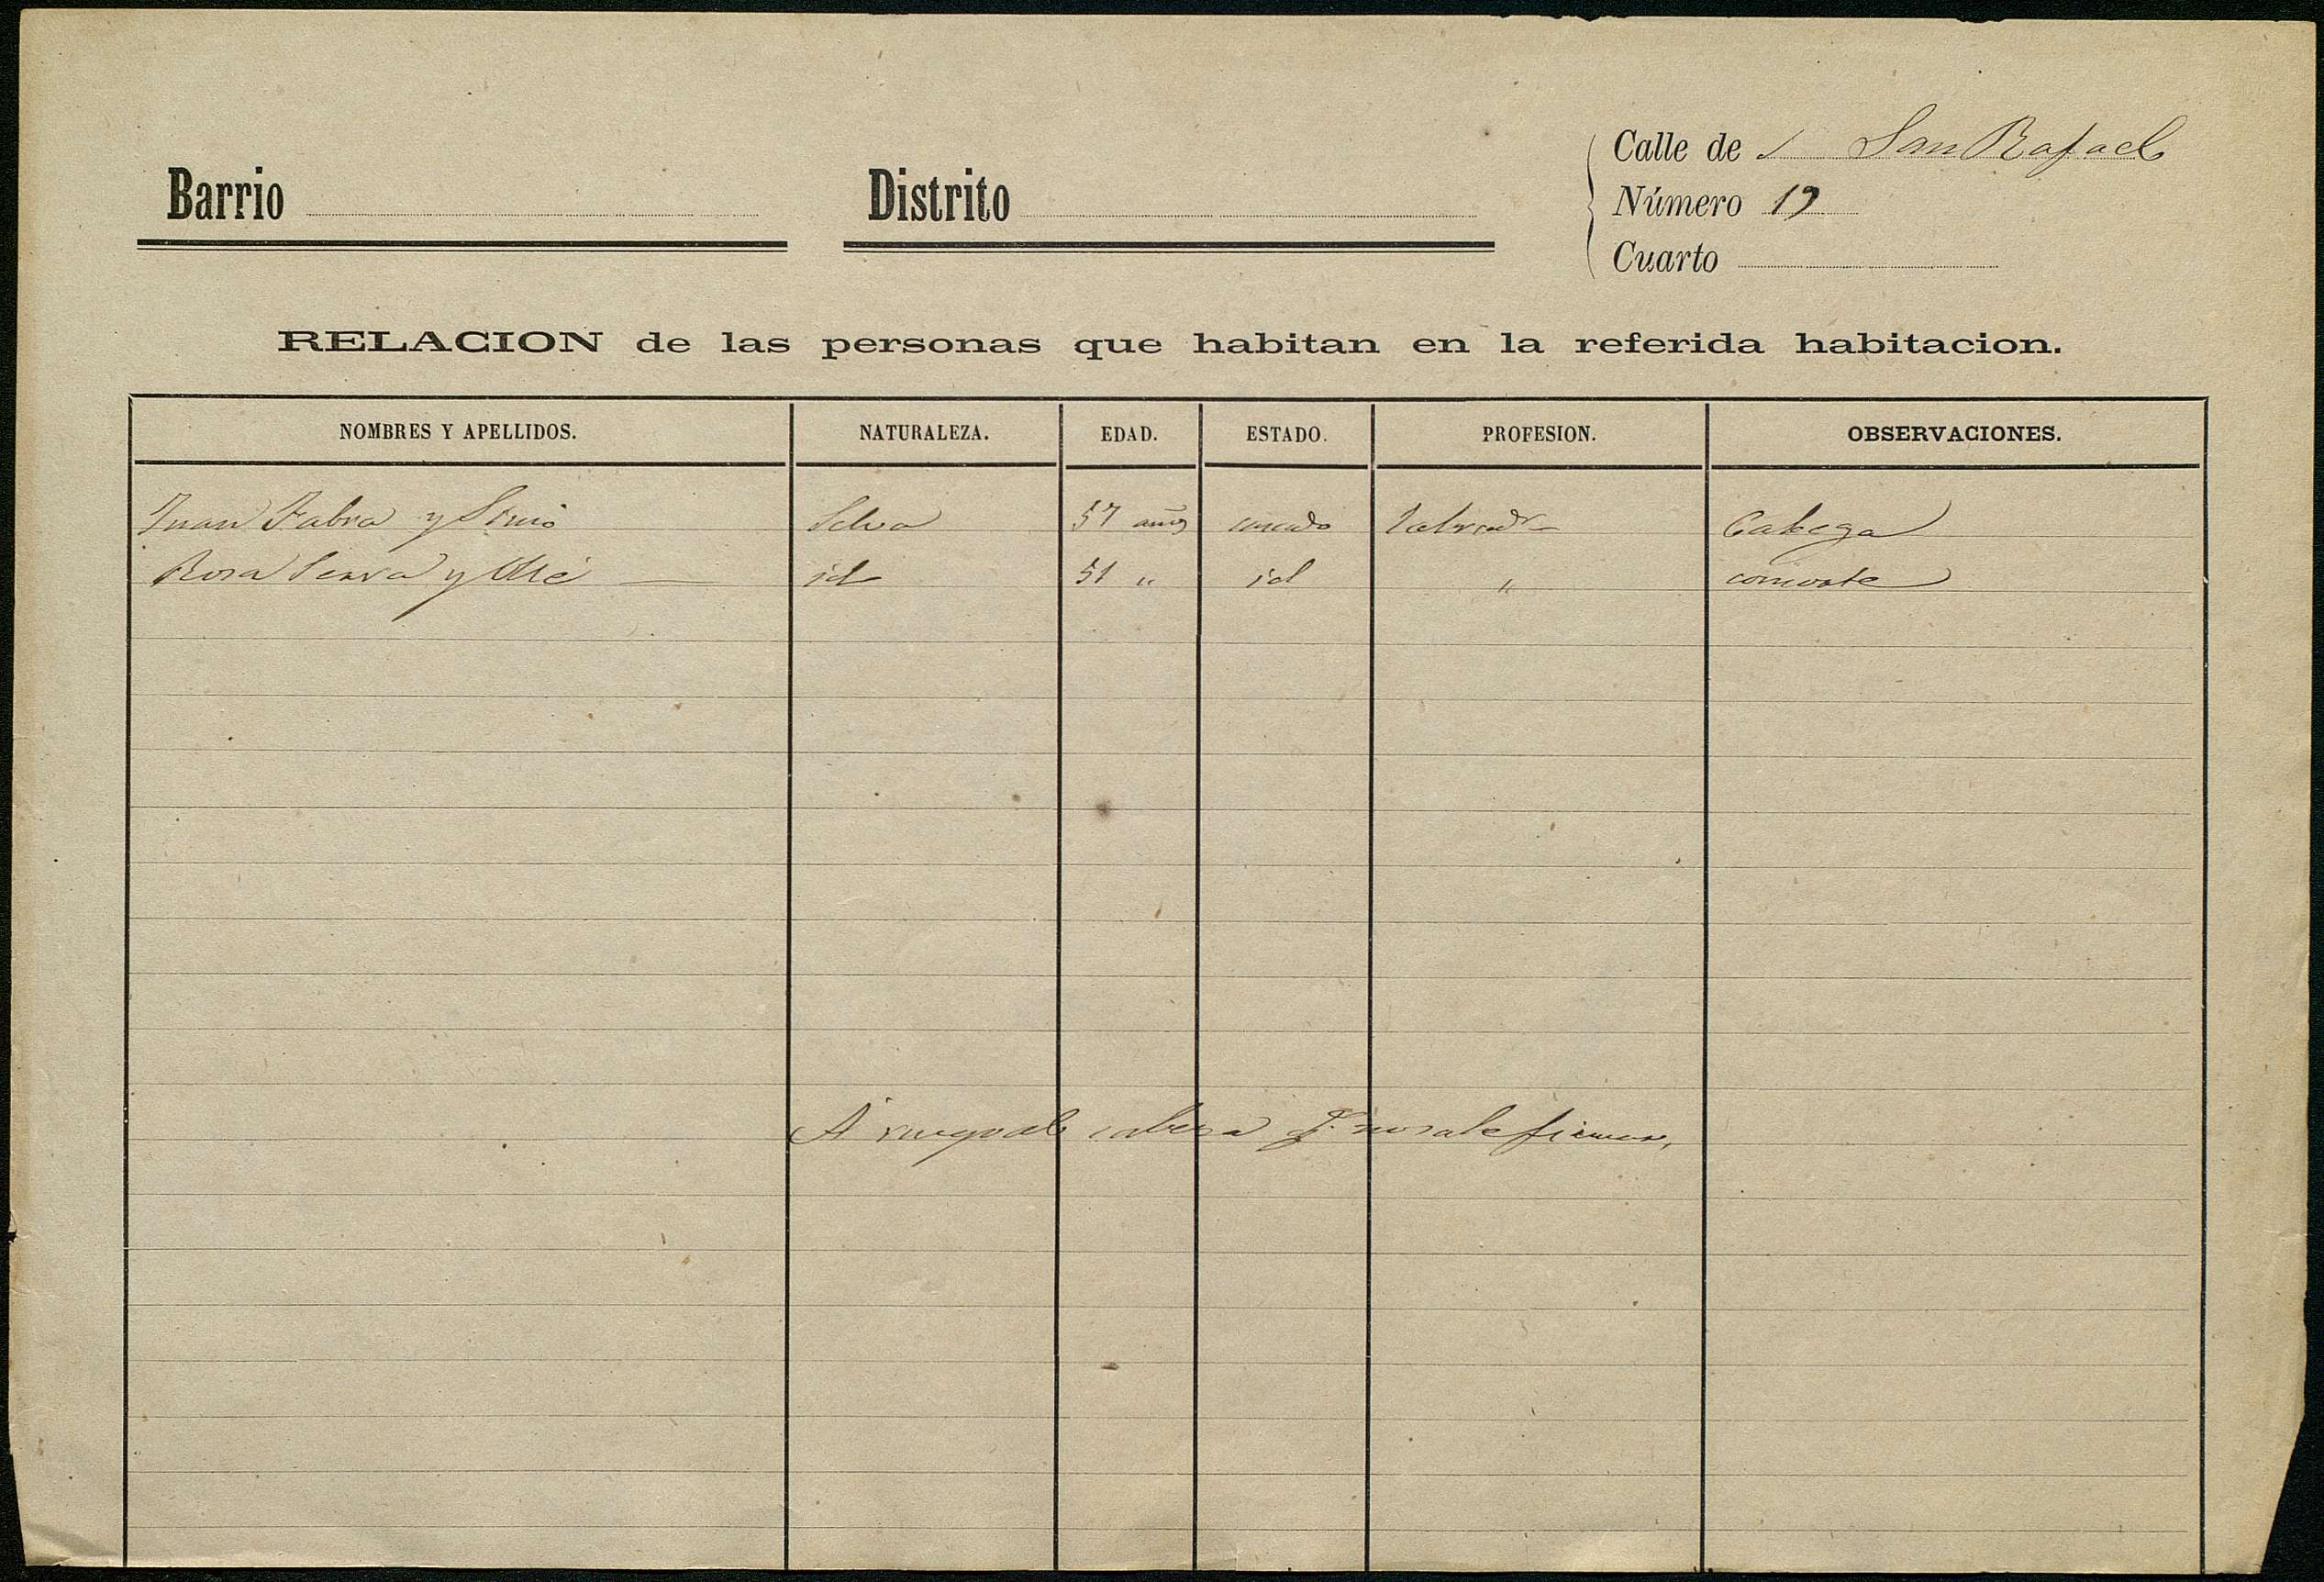 Calle de San Rafael
Barrio Distrito Número 19
Cuarto
RELACION de las personas que habitan en la referida habitacion.
NOMBRES Y APELLIDOS. NATURALEZA. EDAD. ESTADO. PROFESION. OBSERVACIONES.
Juan Fabra y Selva 57 años casado labrador Cabeza
Rosa Serra y Ollé id 51 " id " consorte
A ruego del cabeza firmar,